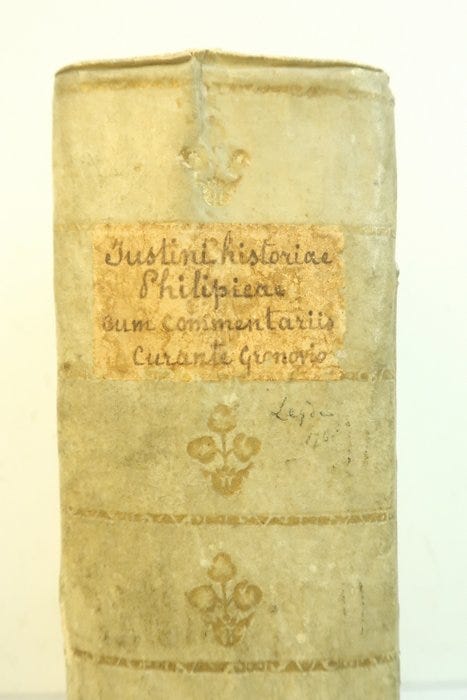 Justini historiae
Philipicae
cum commentariis
Curante Gronovio
Leyde